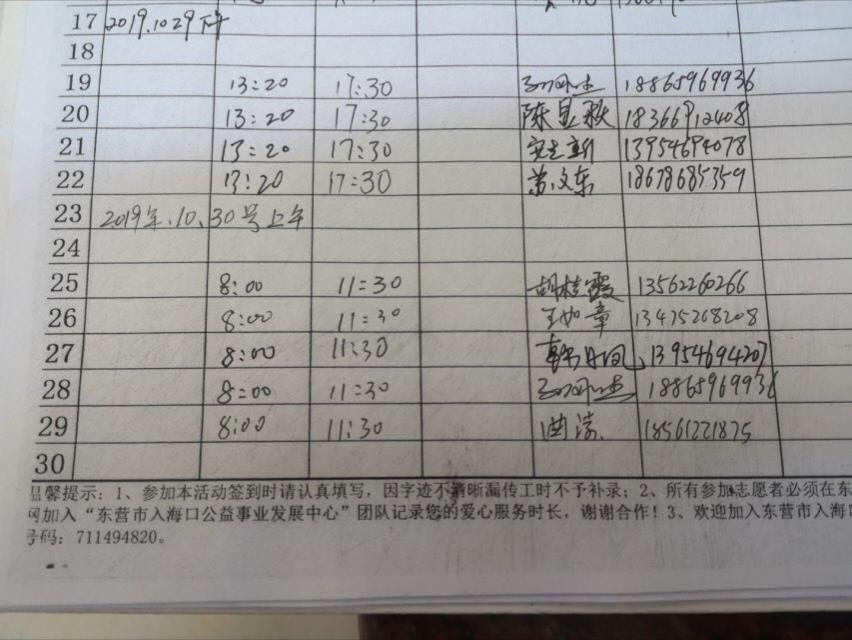 17 2019.10 29下午
18
19 13:20 17:30 18865969936
20 13:20 17:30 陈显秋 18366912408
21 13:20 17:30 13954694078
22 13:20 17:30 苏文东 18678685359
23 2019年.10、30号上午
24
25 8:00 11:30 胡桂霞 13562260266
26 8:00 11:30 王如章 13475268208
27 8:00 11:30 韩月凤 13954694207
28 8:00 11:30 18865969936
29 8:00 11:30 曲涛 18561221875
30
温馨提示：1、参加本活动签到时请认真填写，因字迹不清晰漏传工时不予补录；2、所有参加志愿者必须在东
网加入“东营市入海口公益事业发展中心”团队记录您的爱心服务时长，谢谢合作！3、欢迎加入东营市入海口
号码：711494820。